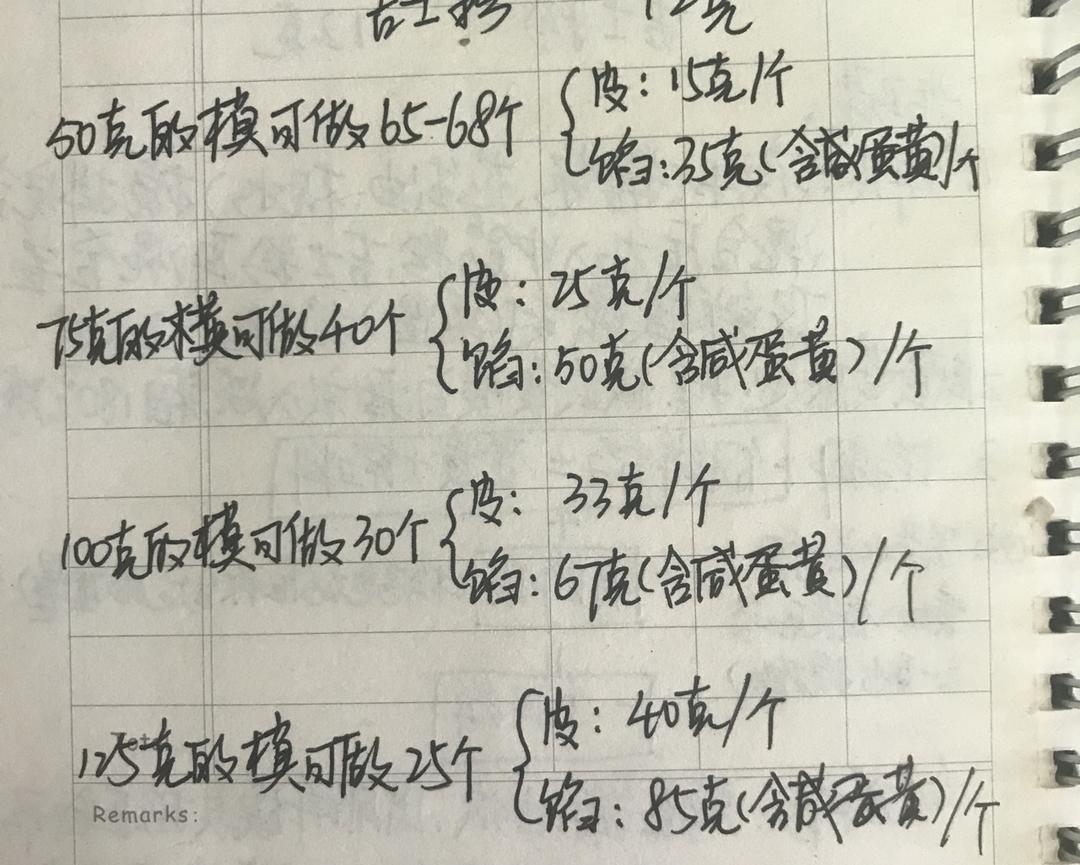 吉士粉 12克
50克的模可做65-68个 皮：15克/个
馅：35克(含咸蛋黄)/个
75克的模可做40个 皮：25克/个
馅：50克(含咸蛋黄)/个
100克的模可做30个 皮：33克/个
馅：67克(含咸蛋黄)/个
125克的模可做25个 皮：40克/个
馅：85克(含咸蛋黄)/个
Remarks: